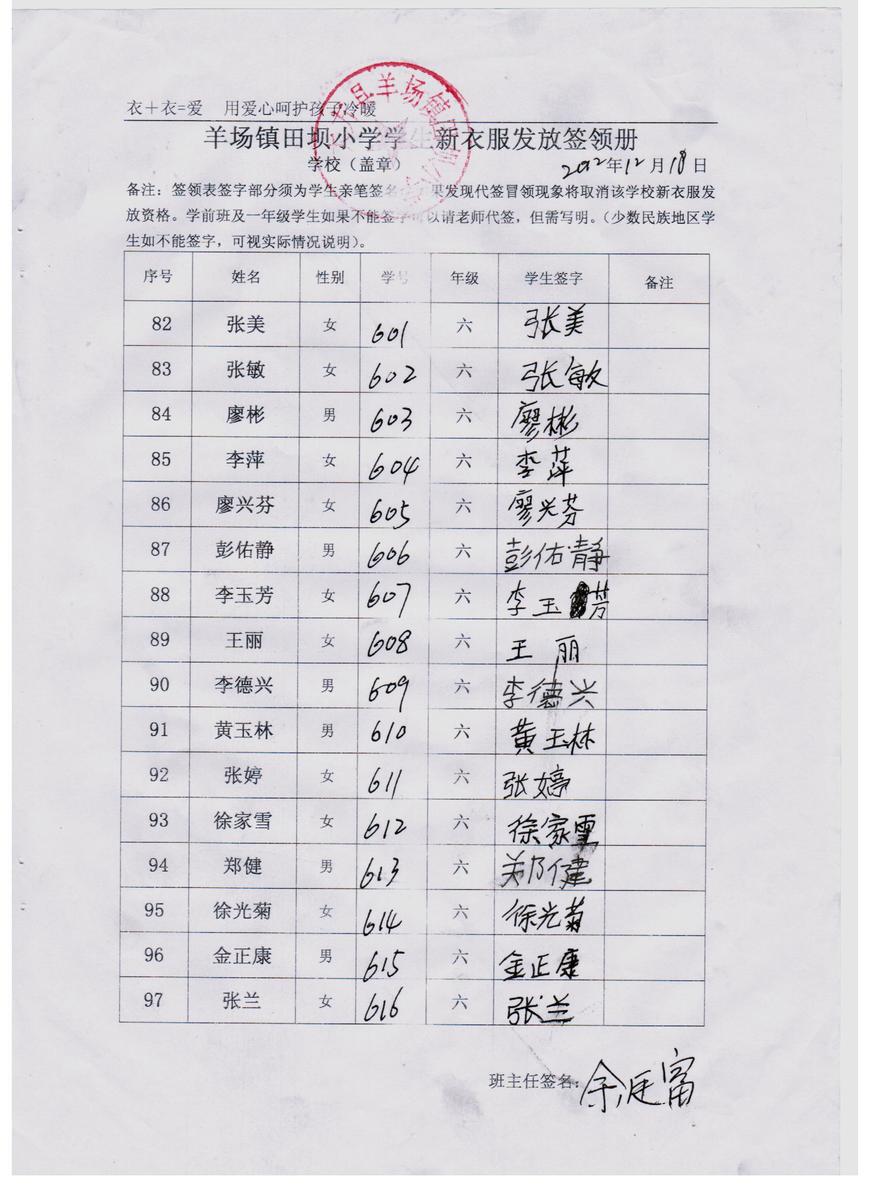 衣＋衣=爱 用爱心呵护孩子冷暖
羊场镇田坝小学学生新衣服发放签领册
学校（盖章） 2012年12月18日
备注：签领表签字部分须为学生亲笔签名，如果发现代签冒领现象将取消该学校新衣服发
放资格。学前班及一年级学生如果不能签字可以请老师代签，但需写明。（少数民族地区学
生如不能签字，可视实际情况说明）。
序号 姓名 性别 学号 年级 学生签字 备注
82 张美 女 601 六 张美
83 张敏 女 602 六 张敏
84 廖彬 男 603 六 廖彬
85 李萍 女 604 六 李萍
86 廖兴芬 女 605 六 廖兴芬
87 彭佑静 男 606 六 彭佑静
88 李玉芳 女 607 六 李玉芳
89 王丽 女 608 六 王丽
90 李德兴 男 609 六 李德兴
91 黄玉林 男 610 六 黄玉林
92 张婷 女 611 六 张婷
93 徐家雪 女 612 六 徐家雪
94 郑健 男 613 六 郑健
95 徐光菊 女 614 六 徐光菊
96 金正康 男 615 六 金正康
97 张兰 女 616 六 张兰
班主任签名：余廷富